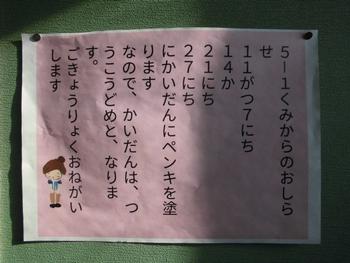 5ー1くみからのおしら
せ
11がつ7にち
14か
21にち
27にち
にかいだんにペンキを塗
ります
なので、かいだんは、つ
うこうどめと、なりま
す。
ごきょうりょくおねがい
します